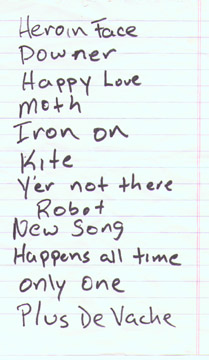 Heroin Face
Downer
Happy Love
Moth
Iron on
Kite
Y'er not there
Robot
New Song
Happens all time
only one
Plus De Vache